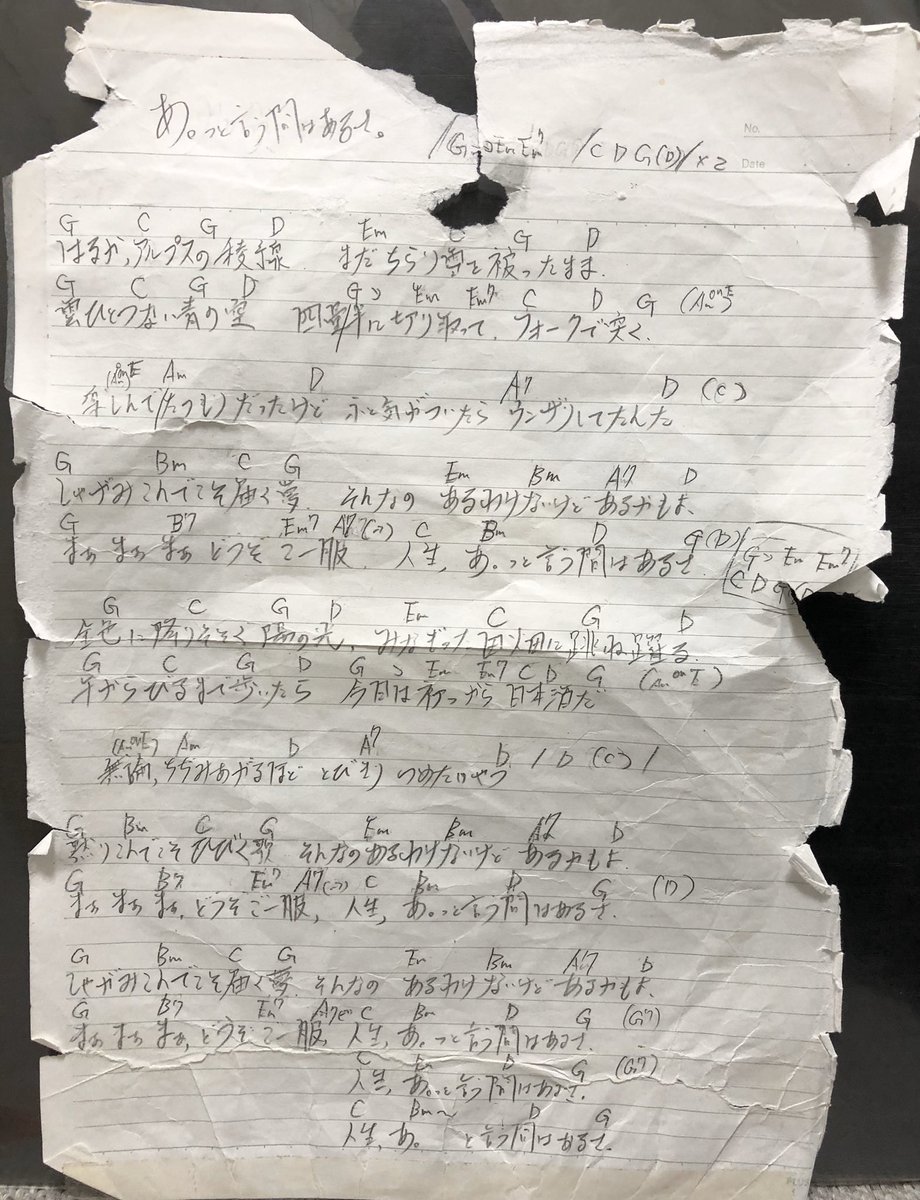 あ。っと言う間はあるさ。
/G → Em Em7 /C D G(D)/×2
No.
Date
G C G D Em C G D
はるか、アルプスの稜線 まだちらり雪を被ったまま
G C G D G Em Em7 C D G (Am onE)
雲ひとつない青の空 四畳半に切り取って、フォークで突く
(Am onE) Am D A7 D (C)
楽しんで(たつもり)だったけど ふと気がついたら ウンザリしてたんだ
G Bm C G Em Bm A7 D
しゃがみこんでこそ届く夢 そんなの あるわけないけど あるかもよ、
G B7 Em7 A7 C Bm D G(D)
まぁ まぁ まぁ どうぞ ご一服、人生、あ。っと言う間はあるさ
G Em Em7
C D G
G C G D Em C G D
金色に降りそそぐ陽の光、みなぎった 田に跳ね躍る
G C G D G Em Em7 C D G (Am onE)
午からひるまで歩いたら 今日は初っから日本酒だ
(Am onE) Am D A7 D / D (C) /
無論、ちぢみあがるほど とびきり つめたいやつ
G Bm C G Em Bm A7 D
黙りこんでこそ ひびく歌 そんなのあるわけないけど あるかもよ
G B7 Em7 A7 C Bm D G (D)
まぁ まぁ まぁ、どうぞ ご一服、人生、あ。っと言う間はあるさ、
G Bm C G Em Bm A7 D
しゃがみこんでこそ届く夢 そんなの あるわけないけど あるかもよ、
G B7 Em7 A7 C Bm D G (G7)
まぁ まぁ まぁ、どうぞ ご一服、人生、あ。っと言う間はあるさ、
C Em D G (G7)
人生、あ。っと言う間はあるさ、
C Bm〜 D G
人生、あ。 と言う間はあるさ、
PLUS